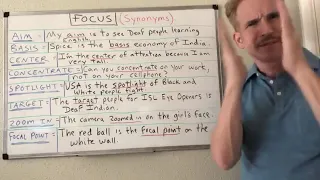 FOCUS (Synonyms)
AIM = My aim is to see Deaf people learning
BASIS = Spice is the basis economy of India.
CENTER = I'm the center of attention because I am
very tall.
CONCENTRATE = Can you concentrate on your work,
not on your cellphone?
SPOTLIGHT = USA is the spotlight of Black and
White people fight
TARGET = The target people for ISL Eye Openers is
Deaf Indian.
ZOOM IN = The camera zoomed in on the girl's face.
FOCAL POINT = The red ball is the focal point on the
white wall.